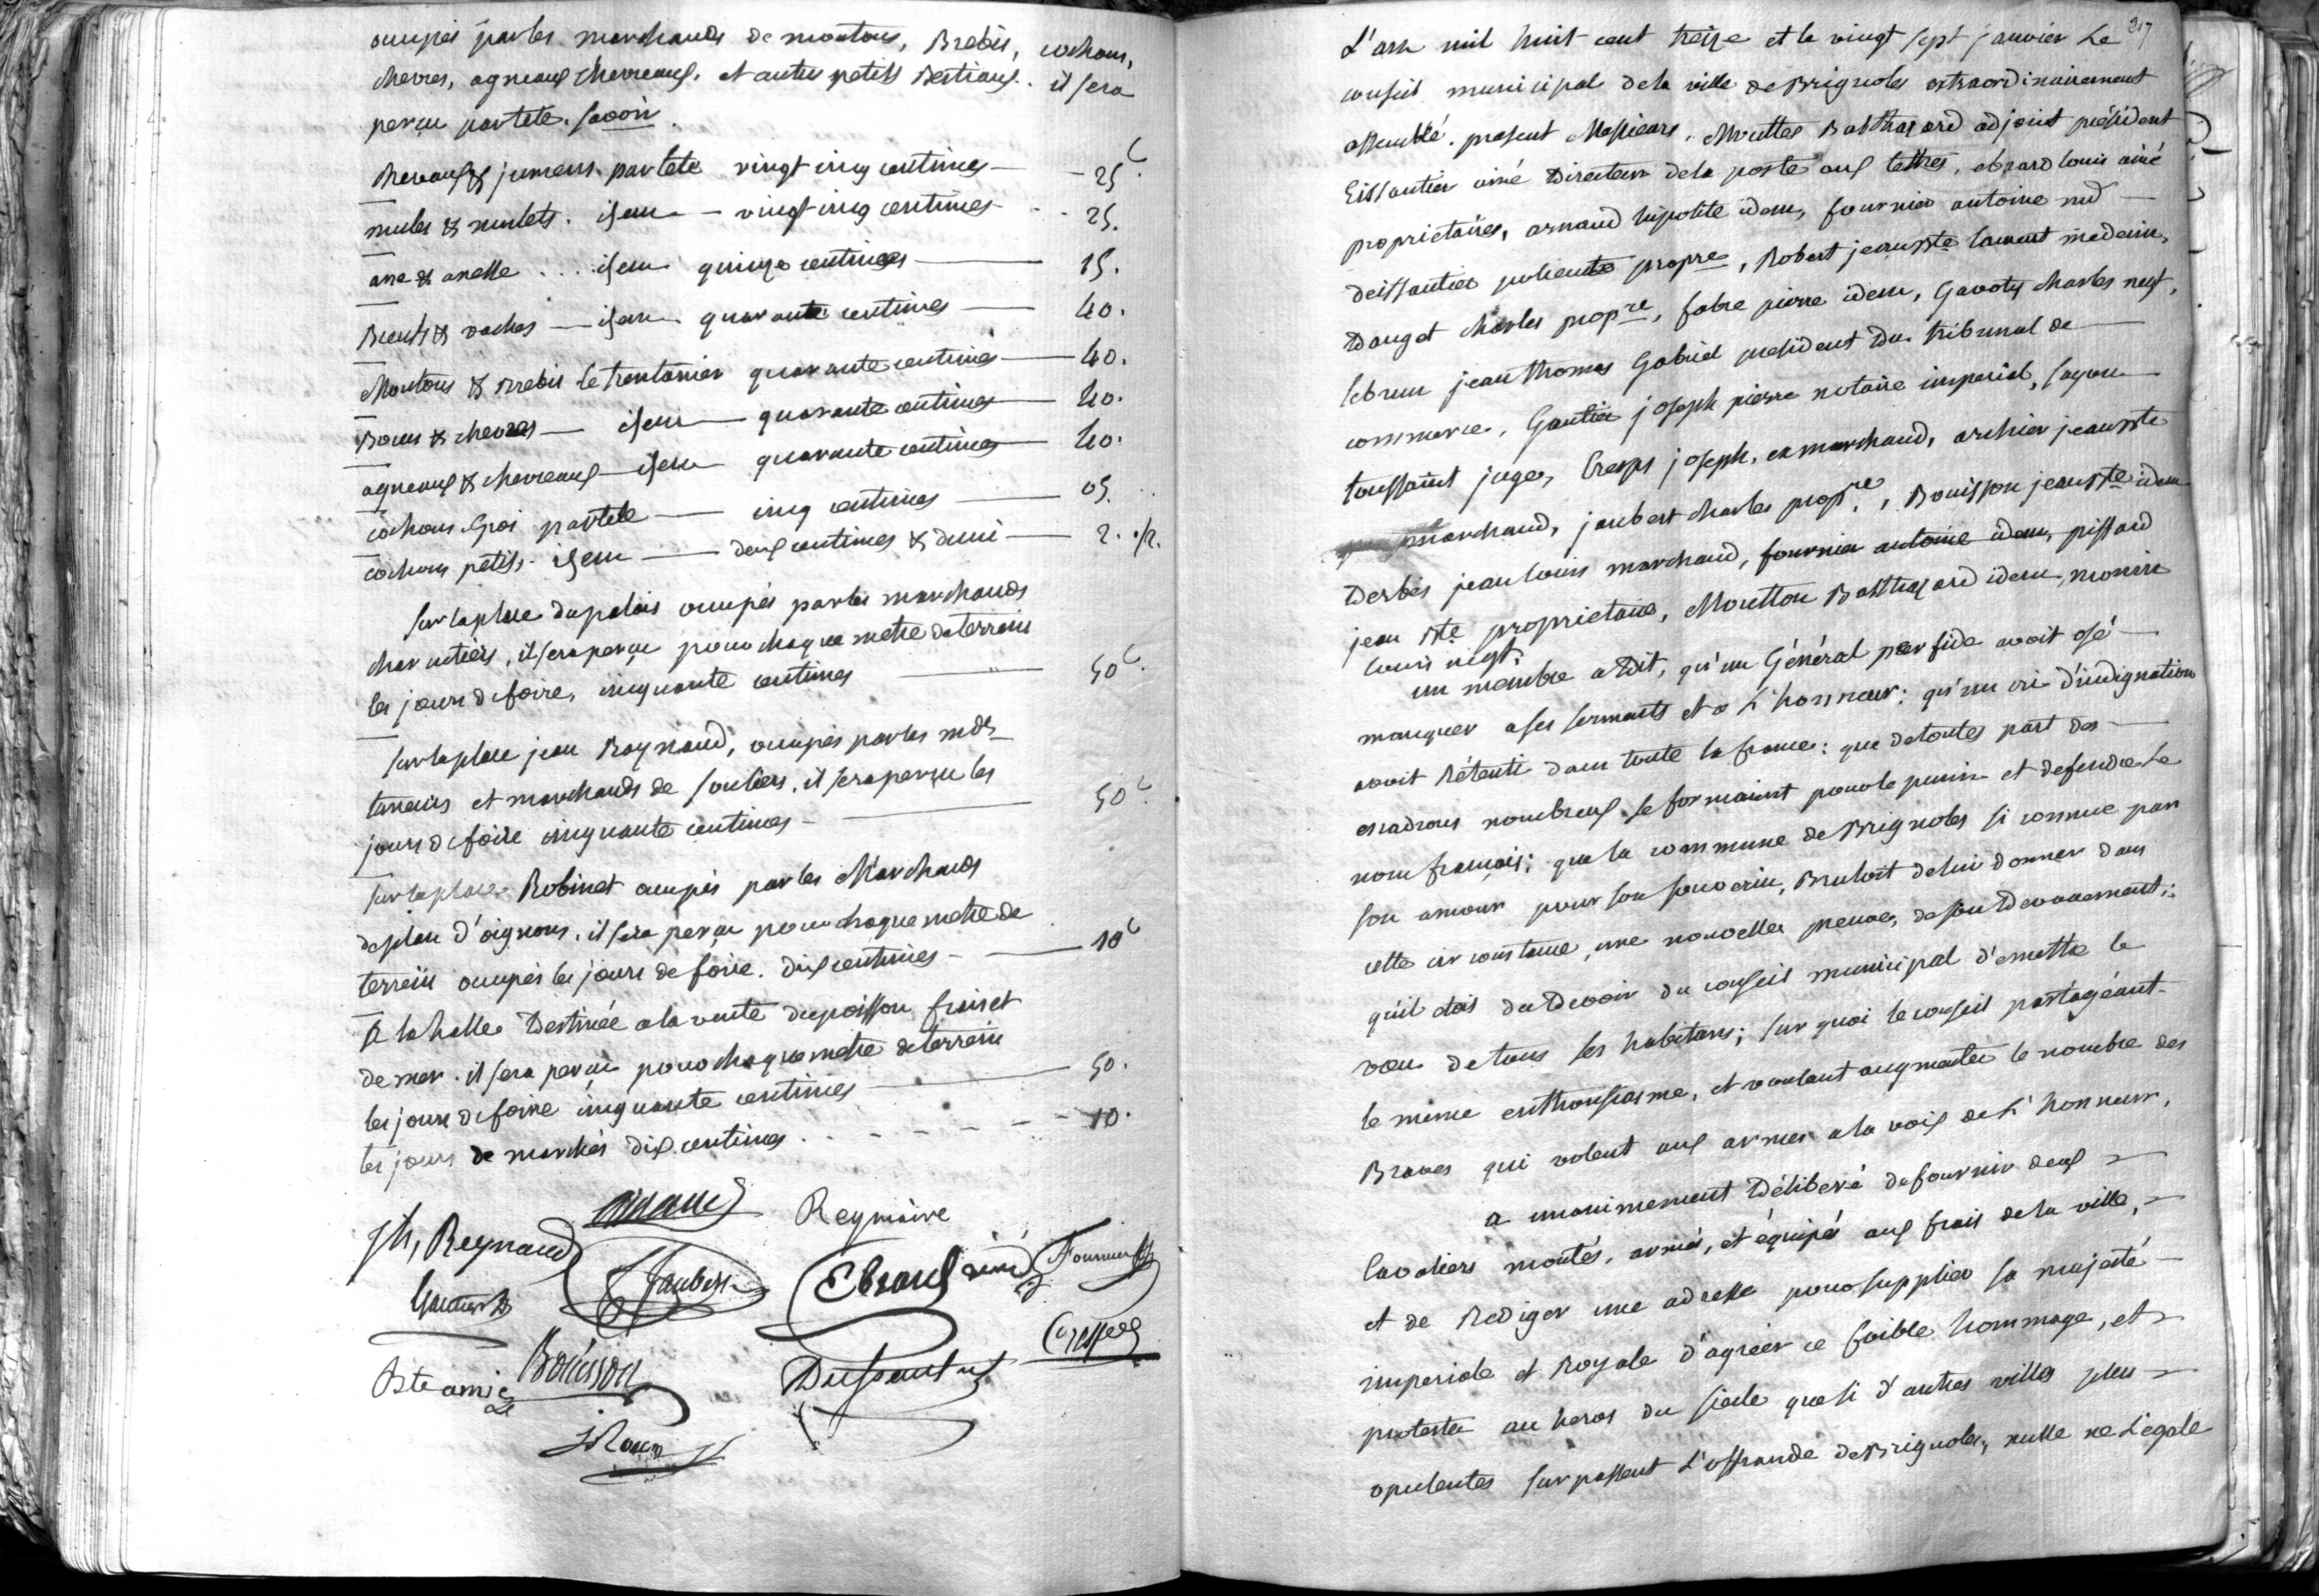 occupés par les marchands de moutons, Brebis, cochons,
chevres, agneaux chevreaux, et autres petits Bestiaux. il sera
perçu par tete. savoir
chevaux & jumens par tete vingt cinq centimes — 25 c
mules & mulets. idem — vingt cinq centimes - - 25.
ane & anesse . . . idem quinze centimes — 15.
Bœufs & vaches — idem quarante centimes — 40.
Moutons & Brebis le trentanier quarante centimes — 40.
Boucs & chevres — idem — quarante centimes — 40.
agneaux & chevreaux — idem quarante centimes — 40.
cochons gros par tete — cinq centimes — 05.
cochons petits. idem — deux centimes & demi — 2. 1/2.
sur la place du palais occupés par les marchands
charcutiers, il sera perçu pour chaque metre de terrein
les jours de foire, cinquante centimes — 50 c.
sur la place jean Raynaud, occupés par les mds
taneurs et marchands de souliers, il sera perçu les
jours de foire cinquante centimes — 50 c.
sur la place Robinet occupés par les Marchands
de plan d'oignons, il sera perçu pour chaque metre de
terrein occupés les jours de foire. dix centimes — 10 c
A la halle Destinée a la vente du poisson frais et
de mer. il sera perçu pour chaque metre de terrein
les jours de foire cinquante centimes — 50.
les jours de marchés dix centimes . - - - - - 10.
Jh, Reynaud Reymoire
Gautier Jaubert Ebrard ainé Fournier
Bte amic Bouisson Cresp
217
L'an mil huit cent treize et le vingt sept janvier Le
conseil municipal de la ville de Brignoles extraordinairement
assemblé. present Messieurs. Mouttes Balthazard adjoint président
Eissautier ainé Directeur de la poste aux lettres, ebrard louis ainé
proprietaires, arnaud hipolite idem, fournier antoine md —
deissautier poliente propre, Robert jean Bte laurent medecin,
Dauget charles propre, fabre pierre idem, Gavoty charles negt,
lebrun jean thomas Gabriel president du tribunal de —
commerce, Gautier joseph pierre notaire imperial, fayon —
toussaint juge, Cresps joseph, ex marchand, archier jean Bte
marchand, jaubert charles propre, Bouisson jean Bte idem
Derbés jean louis marchand, fournier antoine idem, pissard
jean Bte proprietaire, Moutton Balthazard idem, monin
louis negt.
un membre a dit, qu'un Général perfide avoit osé —
manquer a ses serments et a L'honneur: qu'un cri d'indignation
avoit Rétenti dans toute la france: que de toutes part des —
escadrons nombreux se formaient pour le punir et defendre Le
nom français: que la commune de Brignoles si connue par
son amour pour son souverin, Bruloit de lui donner dans
cette circonstance, une nouvelles preuves, de son Devouement;
qu'il etois du Devoir du conseil municipal d'emettre le
vœu de tous les habitans; sur quoi le conseil partagéant
le meme enthousiasme, et voulant augmenter le nombre des
Braves qui volent aux armes a la voix de L'honneur,
a unanimement Délibéré de fournir deux —
Cavaliers montés, armés, et équipés aux frais de la ville, —
et de Rediger une adresse pour supplier sa majesté —
imperiale et Royale d'agréer ce foible hommage, et —
protester au heros du siecle que si d'autres villes plus —
opulentes surpassent L'offrande de Brignoles, nulle ne L'egale